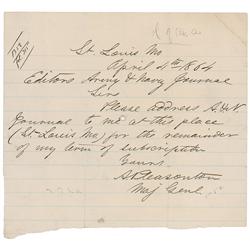 St. Louis Mo
April 4th 1864
Editors Army & Navy Journal
Sirs
Please address A. & N.
Journal to me at this place
(St. Louis Mo) for the remainder
of my term of subscription
Yours
A Pleasonton
Maj Genl.